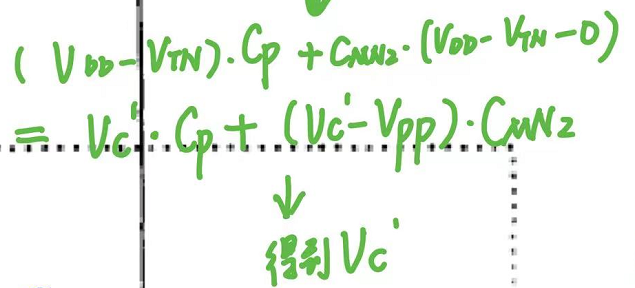 (VDD-VTN)·Cp+CMN2·(VDD-VTN-0)
=Vc'·Cp+(Vc'-Vpp)·CMN2
↓
得到Vc'